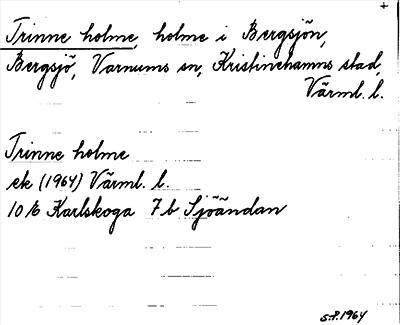 +
Trinne holme, holme i Bergsjön,
Bergsjö, Varnums sn, Kristinehamns stad,
Värml. l.
Trinne holme
ek (1964) Värml. l.
10 E Karlskoga 7 b Sjöändan
S.P. 1964